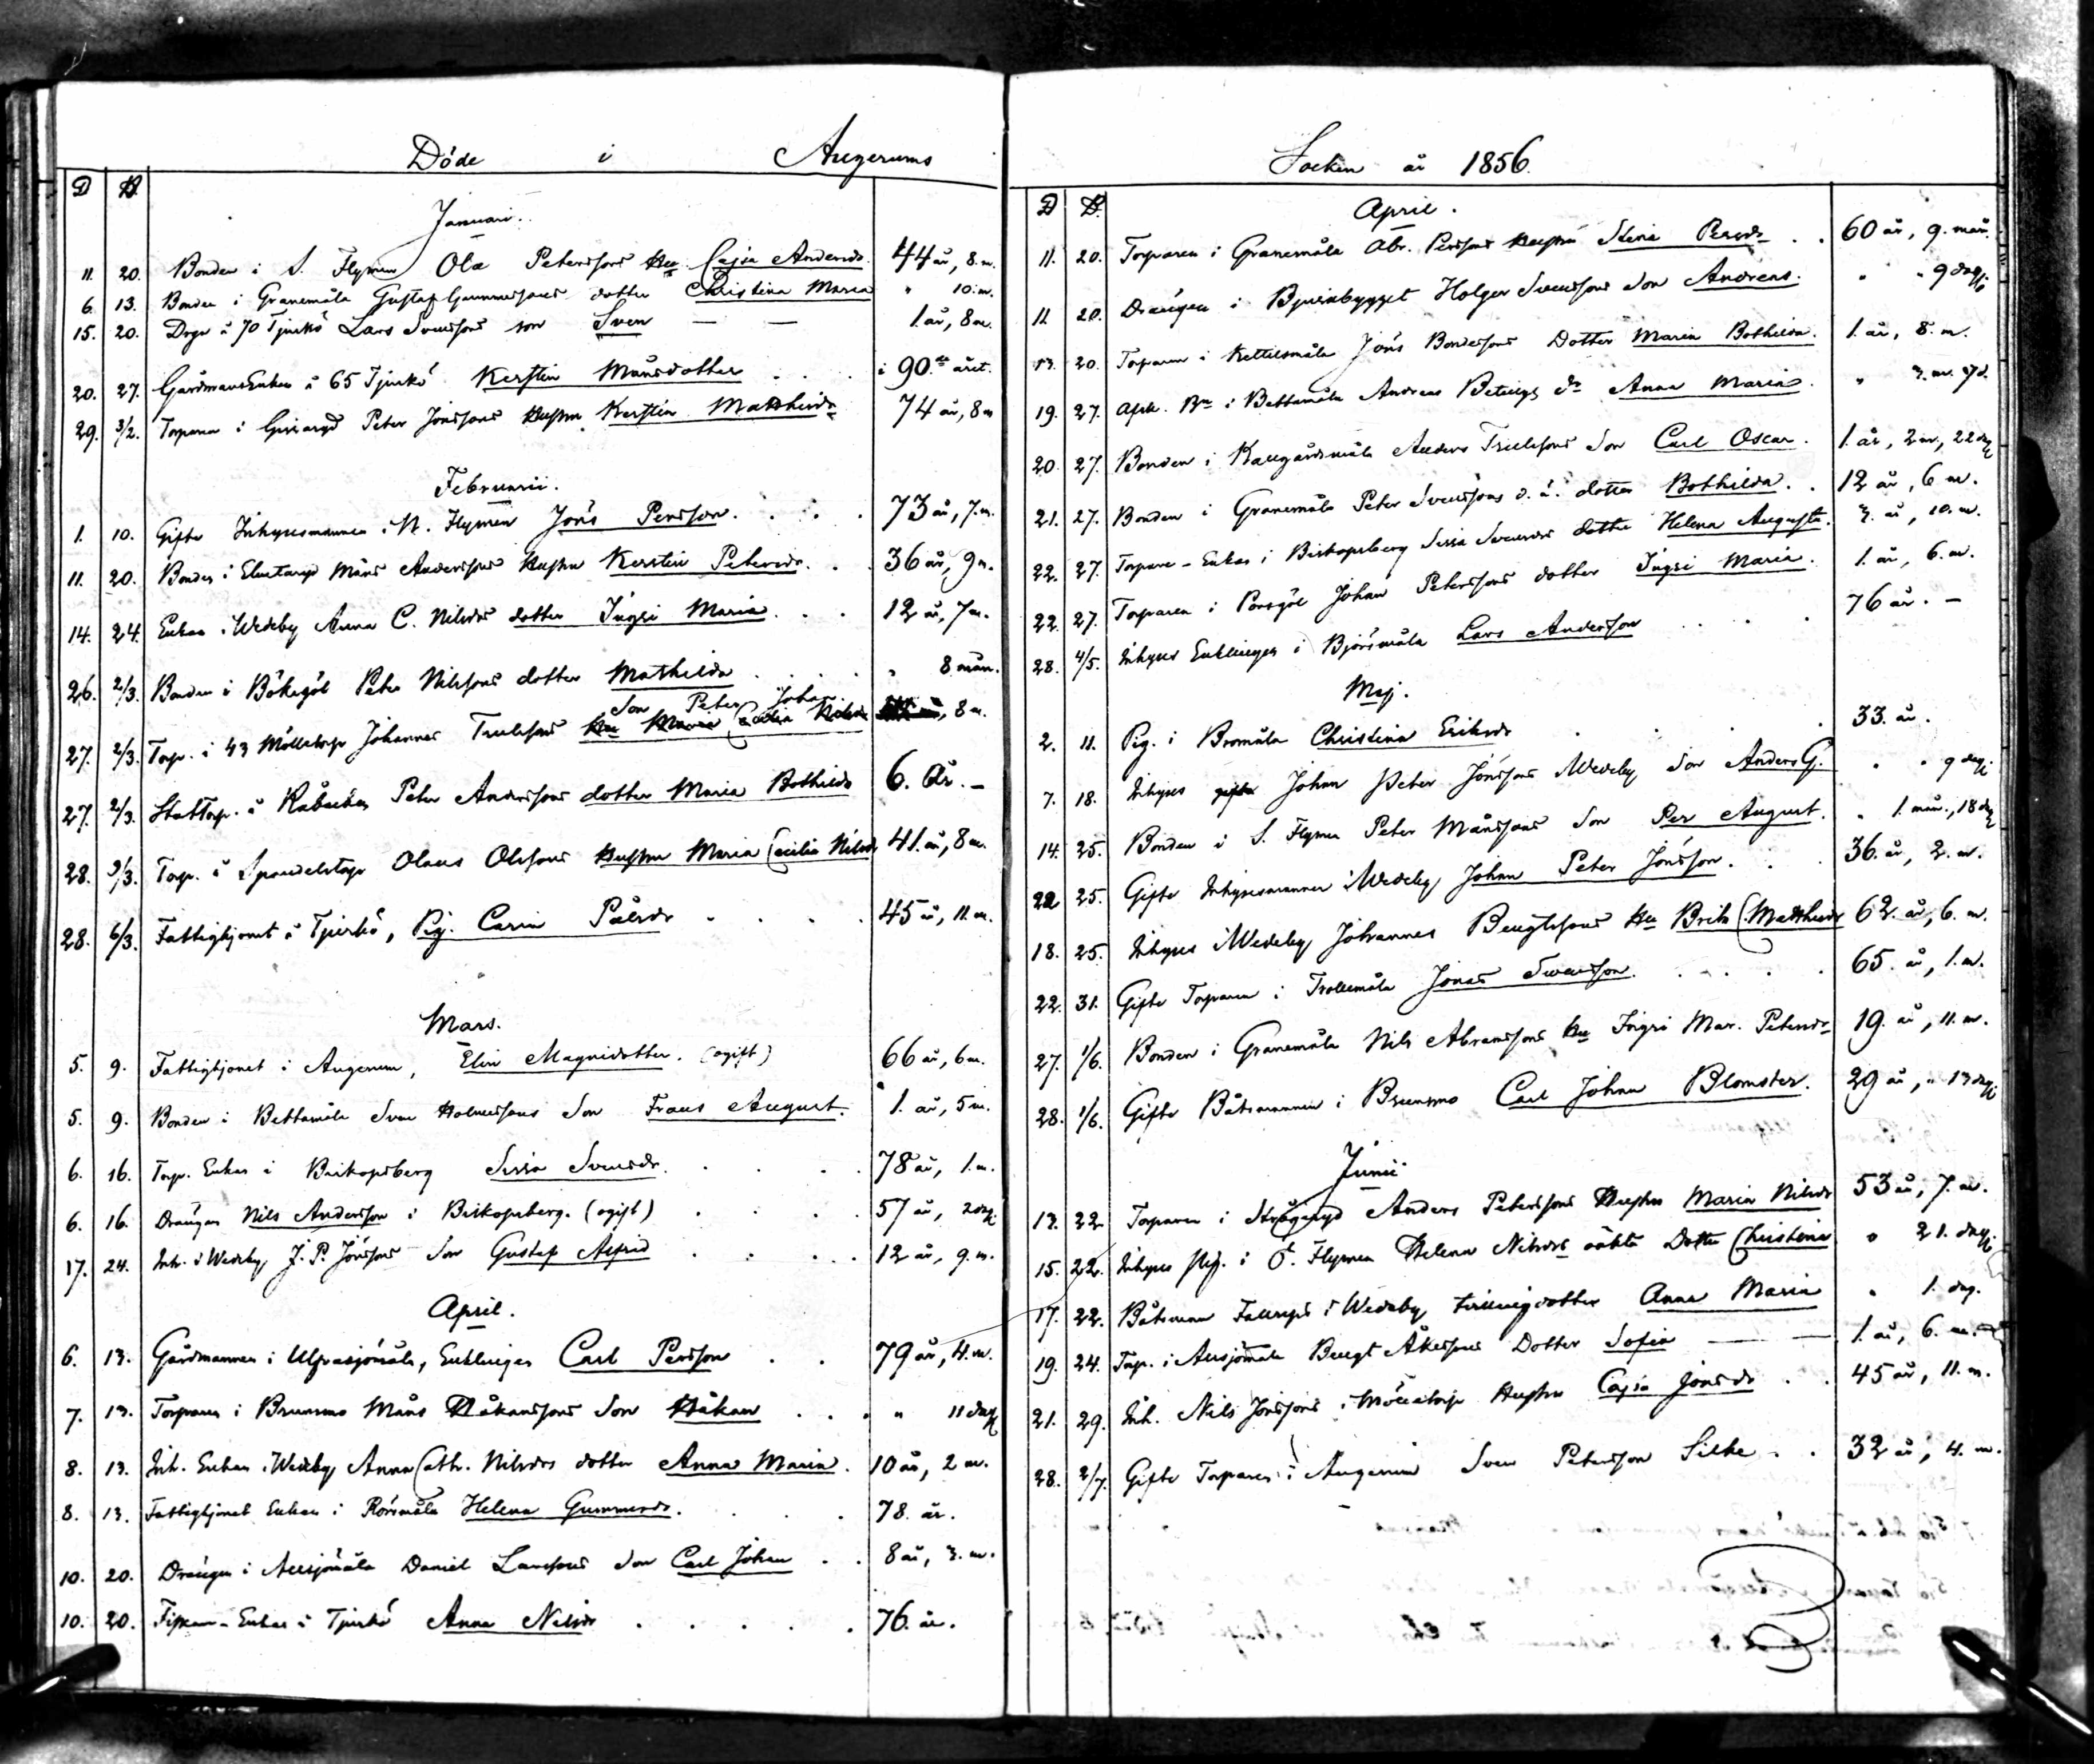 Döde i Augerums
D B.
Januari.
11. 20. Bonden i S. Flymen Ola Peterssons Hu Cajsa Andersdr. 44 år, 8. m.
6. 13. Bonden i Granemåla Gustaf Gummessons dotter Christina Maria " 10. m.
15. 20. Drgn å 70 Tjurkö Lars Svenssons son Sven — — 1. år, 8 m.
20. 27. Gårdmans Enkan å 65 Tjurkö Kerstin Månsdotter . . . i 90de året.
29. 3/2. Torparen i Peter Jönssons Hustru Kerstin Matthisdr 74 år, 8 m
Februarii.
1. 10. Gifte Inhysesmannen i N. Flymen Jöns Persson . . . . 73 år, 7. m.
11. 20. Bonden i Måns Anderssons Hustru Kerstin Petersdr. . . 36 år, 9 m.
14. 24. Enkan i Wedeby Anna C. Nilsdrs dotter Ingri Maria . . . 12 år, 7 m.
26. 2/3. Bonden i Bökegöl Peter Nilssons dotter Mathilda . . . " 8 mån.
Son Peter Johan.
27. 2/3. Torp. i 43 Mölletorp Johannes Trulssons Hu Maria Cecilia Nilsdr , 8 m.
27. 2/3. StatTorp. å Peter Anderssons dotter Maria Bothilda 6. År. —
28. 9/3. Torp. å Spandelstorp Olaus Olssons Hustru Maria Cecilia Nilsdr 41. år, 8 m.
28. 6/3. Fattighjonet å Tjurkö, Pig. Carin Pålsdr . . . . 45 år, 11. m.
Mars.
5. 9. Fattighjonet i Augerum, Elin Magnidotter. (ogift) 66 år, 6 m.
5. 9. Bonden i Bettamåla Sven Holmessons Son Frans August. 1. år, 5 m.
6. 16. Torp. Enkan i Biskopsberg Sissa Svensdr. . . . . 78 år, 1. m.
6. 16. Drängen Nils Andersson i Biskopsberg. (ogift) . . . 57 år, 2 dag.
17. 24. Inh. i Wedeby J. P. Jönssons Son Gustaf Alfrid . . . 12 år, 9. m.
April.
6. 13. Gårdmannen i Ulfvasjömåla, Enklingen Carl Persson . . 79 år, 4. m.
7. 13. Torparen i Brunsmo Måns Håkanssons Son Håkan . . . " 11 dag
8. 13. Inh. Enkan i Wedeby Anna Cath. Nilsdrs dotter Anna Maria . 10 år, 2 m.
8. 13. Fattighjonet Enkan i Rörsmåla Helena Gummesdr. . . . 78. år.
10. 20. Drängen i Allsjömåla Daniel Larssons Son Carl Johan . . 8 år, 3. m.
10. 20. Fiskare-Enkan å Tjurkö Anna Nilsdr . . . . . 76. år.
Socken år 1856.
D B.
April.
11. 20. Torparen i Granemåla Abr. Perssons Hustru Stina Persdr . . 60 år, 9. mån.
11. 20. Drängen i Bjurabygget Holger Svenssons Son Andreas. " " 9 dag.
13. 20. Torparen i Kettilsmåla Jöns Bondessons Dotter Maria Bothilda. 1. år, 8. m.
19. 27. Afsk. Bn i Bettamåla Andreas Betings dr Anna Maria . " 3. m. 7 d.
20. 27. Bonden i Anders Trulssons Son Carl Oscar. 1. år, 2 m, 22 dag
21. 27. Bonden i Granemåla Peter Svenssons d. ä. dotter Bothilda. . 12 år, 6 m.
22. 27. Torpare-Enkan i Biskopsberg Sissa Svensdrs dotter Helena Augusta. 3. år, 10. m.
22. 27. Torparen i Porsgöl Johan Peterssons dotter Ingri Maria. 1. år, 6. m.
28. 4/5. Inhyses Enklingen i Björsmåla Lars Andersson . . . 76 år. —
Maj.
2. 11. Pig. i Bromåla Christina Eriksdr . . . . 33. år.
7. 18. Inhyses gifte Johan Peter Jönssons Wedeby Son Anders G. " " 9 dag.
14. 25. Bonden i S. Flymen Peter Månssons Son Per August. " 1. mån., 18 dag
22 25. Gifte Inhysesmannen i Wedeby Johan Peter Jönsson. . . 36. år, 2. m.
18. 25. Inhyses i Wedeby Johannes Bengtssons Hu Brita Matthisdr 62. år, 6. m.
22. 31. Gifte Torparen i Trollemåla Jonas Svensson. . . . . 65. år, 1. m.
27. 1/6. Bonden i Granemåla Nils Abramssons Hu Ingri Mar. Petersdr 19. år, 11. m.
28. 1/6. Gifte Båtsmannen i Brunsmo Carl Johan Blomster. 29 år, " 13 dag.
Junii.
13. 22. Torparen i Anders Peterssons Hustru Maria Nilsdr 53 år, 7. m.
15. 22. Inhyses Pig. i Ö. Flymen Helena Nilsdrs oäkta Dotter Christina " 21. dag.
17. 22. Båtsman i Wedeby tvillingdotter Anna Maria " 1. dag.
19. 24. Torp. i Allsjömåla Bengt Åkessons Dotter Sofia — — 1. år, 6. m.
21. 29. Inh. Nils Jönssons i Möllatorp Hustru Cajsa Jönsdr . . 45 år, 11. m.
28. 2/7. Gifte Torparen i Augerum Sven Petersson Silke . . 32 år, 4. m.